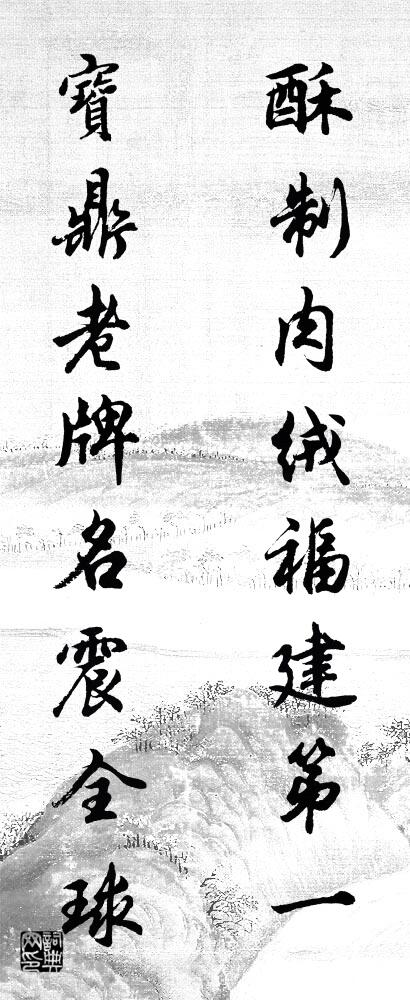 酥制肉绒福建第一
寶鼎老牌名震全球